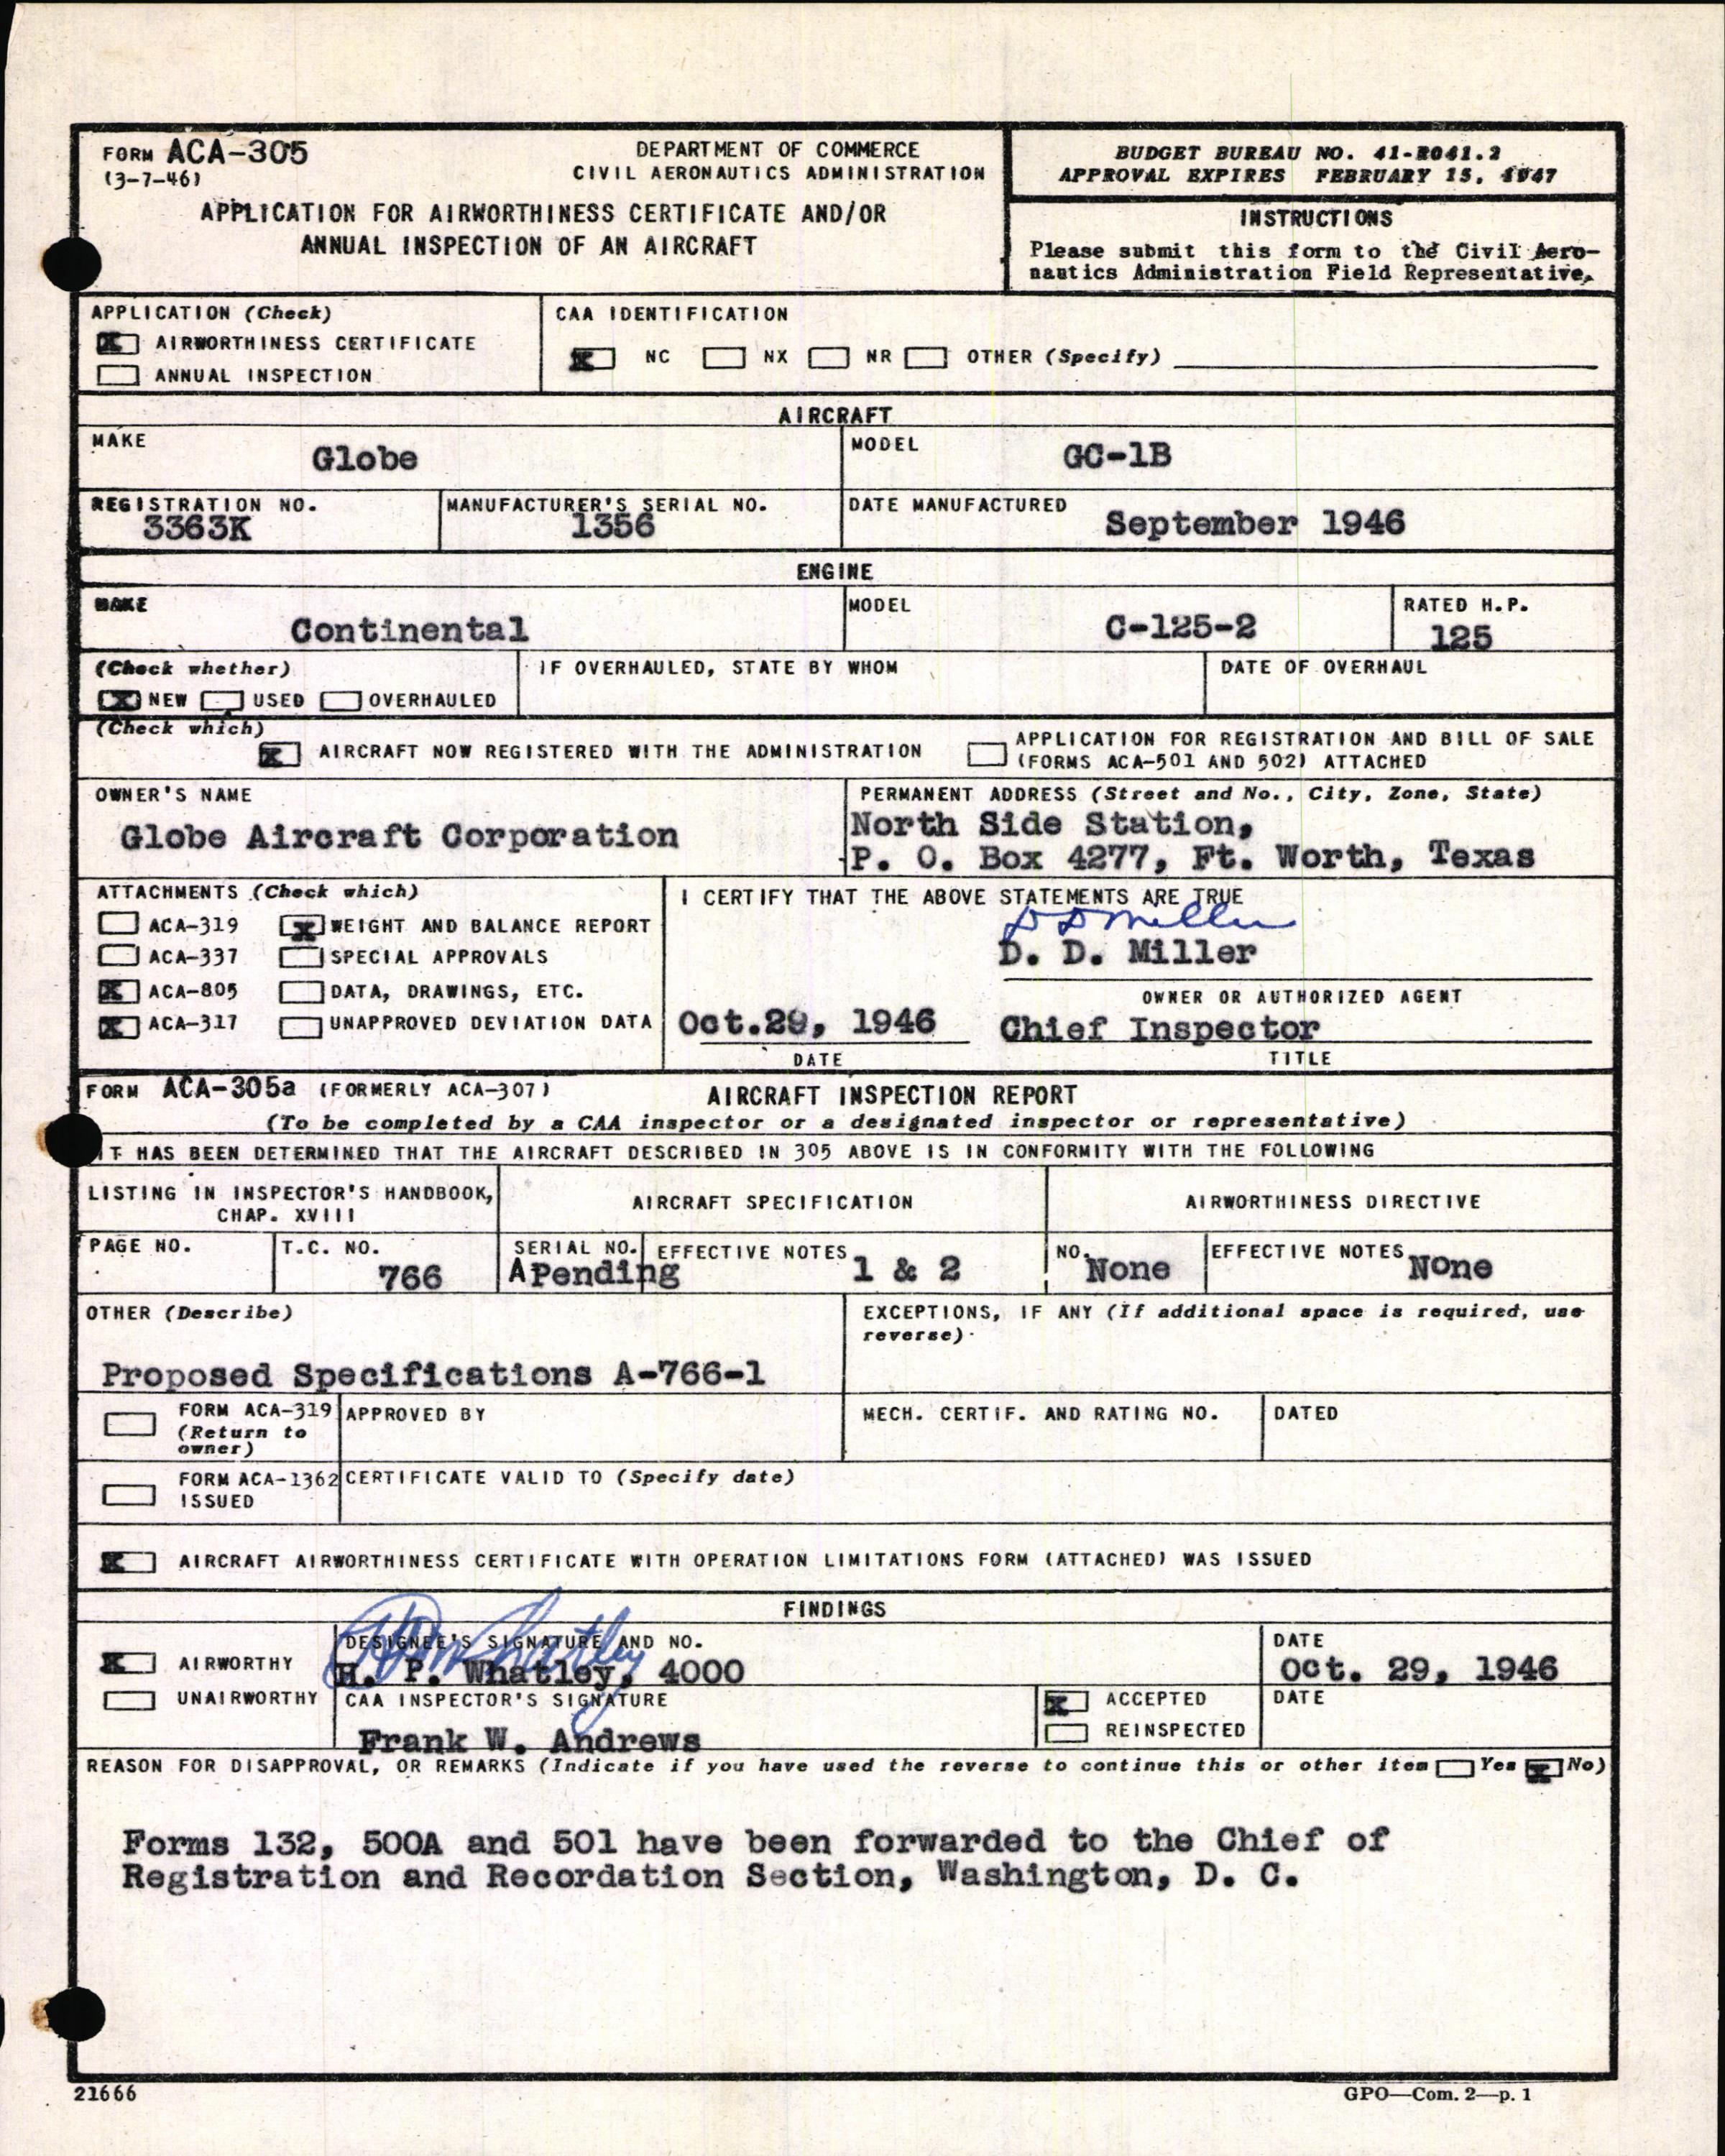 FORM ACA-305
(3-7-46)
DEPARTMENT OF COMMERCE
CIVIL AERONAUTICS ADMINISTRATION
APPLICATION FOR AIRWORTHINESS CERTIFICATE AND/OR
ANNUAL INSPECTION OF AN AIRCRAFT
BUDGET BUREAU NO. 41-R041.2
APPROVAL EXPIRES FEBRUARY 15, 1947
INSTRUCTIONS
Please submit this form to the Civil Aero-
nautics Administration Field Representative.
APPLICATION (Check)
X AIRWORTHINESS CERTIFICATE
ANNUAL INSPECTION
CAA IDENTIFICATION
X NC NX NR OTHER (Specify)
AIRCRAFT
MAKE
Globe
MODEL
GC-1B
REGISTRATION NO.
3363K
MANUFACTURER'S SERIAL NO.
1356
DATE MANUFACTURED
September 1946
ENGINE
MAKE
Continental
MODEL
C-125-2
RATED H.P.
125
(Check whether)
X NEW USED OVERHAULED
IF OVERHAULED, STATE BY WHOM
DATE OF OVERHAUL
(Check which)
X AIRCRAFT NOW REGISTERED WITH THE ADMINISTRATION
APPLICATION FOR REGISTRATION AND BILL OF SALE
(FORMS ACA-501 AND 502) ATTACHED
OWNER'S NAME
Globe Aircraft Corporation
PERMANENT ADDRESS (Street and No., City, Zone, State)
North Side Station,
P. O. Box 4277, Ft. Worth, Texas
ATTACHMENTS (Check which)
ACA-319 X WEIGHT AND BALANCE REPORT
ACA-337 SPECIAL APPROVALS
X ACA-805 DATA, DRAWINGS, ETC.
X ACA-317 UNAPPROVED DEVIATION DATA
I CERTIFY THAT THE ABOVE STATEMENTS ARE TRUE
D D Miller
D. D. Miller
OWNER OR AUTHORIZED AGENT
Oct.29, 1946
DATE
Chief Inspector
TITLE
FORM ACA-305a (FORMERLY ACA-307)
AIRCRAFT INSPECTION REPORT
(To be completed by a CAA inspector or a designated inspector or representative)
IT HAS BEEN DETERMINED THAT THE AIRCRAFT DESCRIBED IN 305 ABOVE IS IN CONFORMITY WITH THE FOLLOWING
LISTING IN INSPECTOR'S HANDBOOK,
CHAP. XVIII
AIRCRAFT SPECIFICATION
AIRWORTHINESS DIRECTIVE
PAGE NO.
T.C. NO.
766
SERIAL NO.
APending
EFFECTIVE NOTES
1 & 2
NO.
None
EFFECTIVE NOTES
None
OTHER (Describe)
Proposed Specifications A-766-1
EXCEPTIONS, IF ANY (If additional space is required, use
reverse)
FORM ACA-319
(Return to
owner)
APPROVED BY
MECH. CERTIF. AND RATING NO.
DATED
FORM ACA-1362
ISSUED
CERTIFICATE VALID TO (Specify date)
X AIRCRAFT AIRWORTHINESS CERTIFICATE WITH OPERATION LIMITATIONS FORM (ATTACHED) WAS ISSUED
FINDINGS
X AIRWORTHY
UNAIRWORTHY
DESIGNEE'S SIGNATURE AND NO.
H P Whatley
H. P. Whatley, 4000
DATE
Oct. 29, 1946
CAA INSPECTOR'S SIGNATURE
Frank W. Andrews
X ACCEPTED
REINSPECTED
DATE
REASON FOR DISAPPROVAL, OR REMARKS (Indicate if you have used the reverse to continue this or other item Yes X No)
Forms 132, 500A and 501 have been forwarded to the Chief of
Registration and Recordation Section, Washington, D. C.
21666
GPO—Com. 2—p. 1